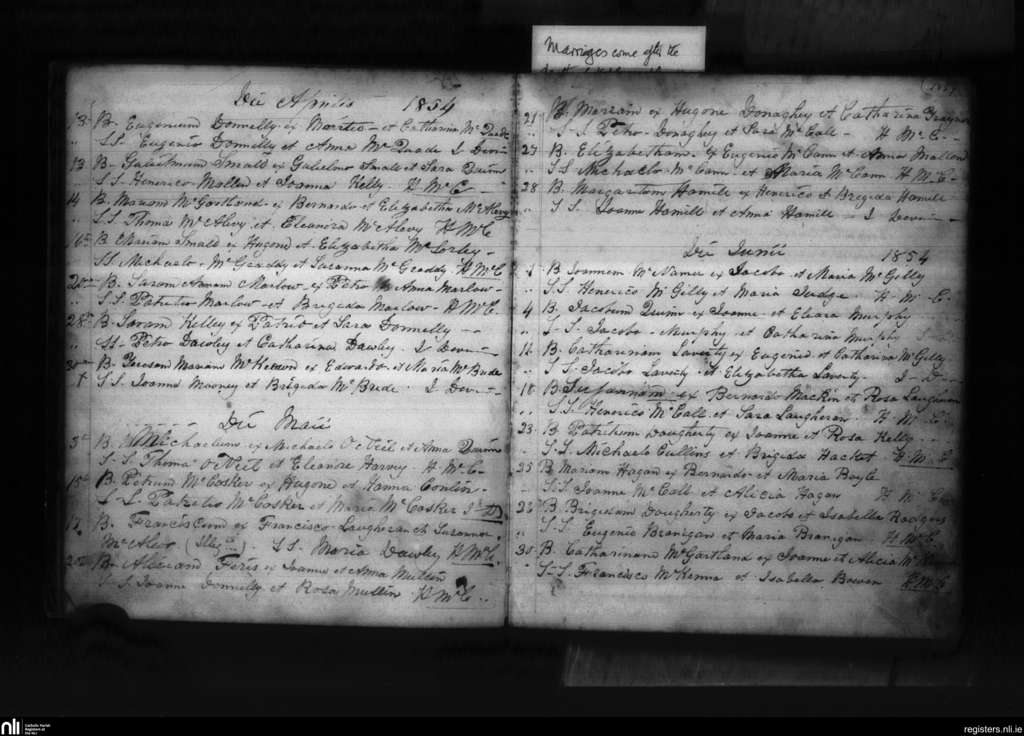 Marriages come after the
Die Aprilis 1854
13 B. Eugenium Donnelly ex Marito et Catharina McDade
" SS. Eugenio Donnelly et Anna McDade I Devin
13 B. Gulielmum Small ex Gulielmo Small et Sara Quinn
S.S. Henerico Mallen et Joanna Kelly. H McC
14 B. Mariam McGartland ex Bernardo et Elizabetha McAlevy
S.S. Thoma McAlevy et Eleanora McAlevy H McC
16th B Mariam Small ex Hugone et Elizabetha McSorley
SS Michaelo McGraddy et Susanna McGraddy H McC
B. Saram Marlow ex Petro Anna Marlow
S.S. Patritio Marlow et Brigida Marlow H McC
28th B Saram Kelley ex Patrid et Sara Donnelly
SS Petro Dawley et Catharina Dawley. I Devin
30th B. Teresam Mariam McKeown ex Edwardo et Maria McBride
" S.S. Joanne Mooney et Brigida McBride I Devin
Die Maii
3d B Michaelum ex Michaelo O'Neil et Anna Quinn
S.S. Thoma O'Neil et Eleanore Harvey H McC
15th B. Petrum McCosker ex Hugone et Hanna Conlin
S.S. Patritio McCosker et Maria McCosker I D
17 B. Franciscum ex Francisco Laugheran et Susanna
McAleer (Illegte) SS. Maria Dawley H McC.
B. Aliciam Feris ex Joanne et Anna Mullin
S.S. Joanne Donnelly et Rosa Mullin H McC
21 B. Mariam ex Hugone Donaghey et Catharina Traynor
" S.S. Petro Donaghey et Sara McCall H McC
27 B. Elizabetham ex Eugenio McCann et Anna Mallon
" SS Michaelo McCann et Maria McCann H McC
28 B. Margaritam Hamill ex Henerico et Brigida Hamill
" S.S. Joanne Hamill et Anna Hamill I Devin
Die Junii 1854
1 B Joannem McNamee ex Jacobo et Maria McGilly
" S.S. Henerico McGilly et Maria Judge H McC
4 B. Jacobum Quinn ex Joanne et Eleara Murphy
" S.S. Jacobo Murphy et Catharina Murphy
11 B. Catharinam Laverty ex Eugenio et Catharina McGilly
" S.S. Jacobo Laverty et Elizabetha Laverty I D
18 B Susannam ex Bernardo Mackin et Rosa Laugheran
" S.S. Henerico McCall et Sara Laugheran H McC
23 B. Patritium Dougherty ex Joanne et Rosa Kelly
" S.S. Michaelo Cullins et Brigida Hacket H McC
25 B Mariam Hagan ex Bernardo et Maria Boyle
" S.S. Joanne McCall et Alicia Hagan H McC
26 B Brigidam Dougherty ex Jacobo et Isabella Rodgers
" S.S. Eugenio Branigan et Maria Branigan H McC
30 B. Catharinam McGartland ex Joanne et Alicia
S.S. Francisco McKenna et Isabella Bowen H McC
nli
Catholic Parish
Registers at
the NLI
registers.nli.ie